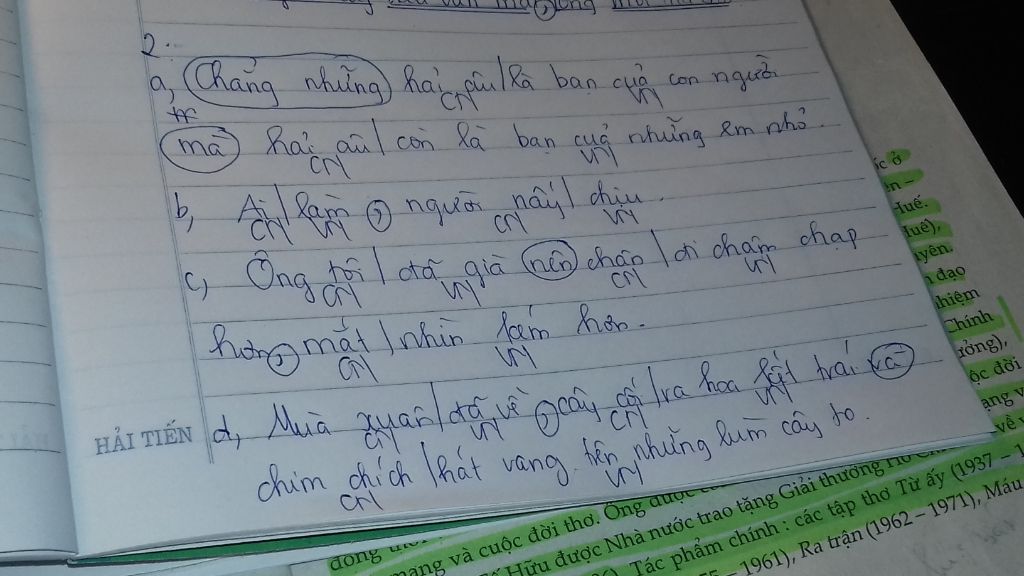 2.
a, Chẳng những hải âu / là bạn của con người
CN VN
mà hải âu / còn là bạn của những em nhỏ.
CN VN
b, Ai / làm , người nấy / chịu.
CN VN CN VN
c, Ông tôi / đã già nên chân / đi chậm chạp
CN VN CN VN
hơn , mắt / nhìn kém hơn.
CN VN
HẢI TIẾN
d, Mùa xuân / đã về , cây cối / ra hoa kết trái và
CN VN CN VN
chim chích / hát vang trên những lùm cây to.
CN VN
Huế.
Huế),
đạo
Chính
mạng và cuộc đời thơ. Ông được
Hữu được Nhà nước trao tặng Giải thưởng
Tác phẩm chính : các tập thơ Từ ấy (1937 –
1961), Ra trận (1962 – 1971), Máu